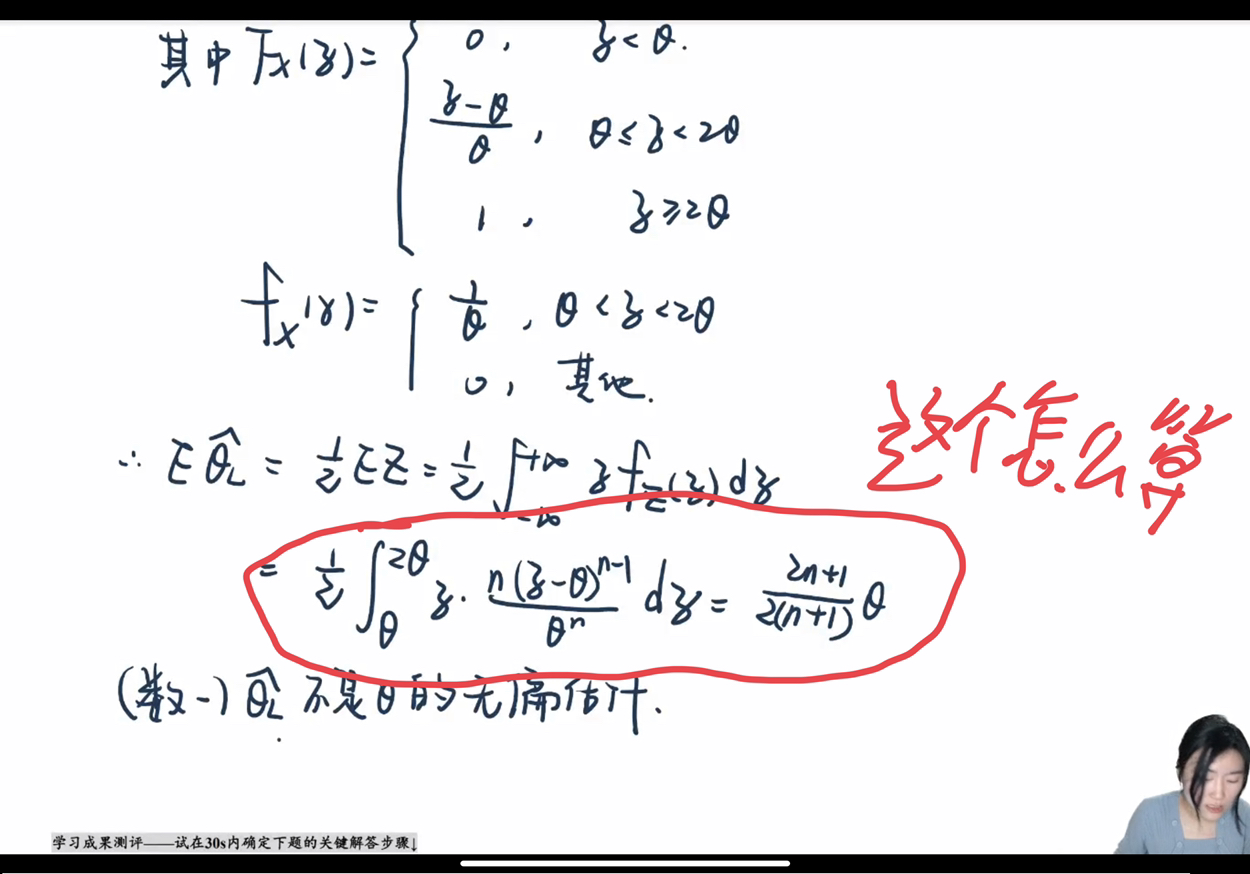 其中 F_X(z) = { 0, z < θ.
(z-θ)/θ, θ ≤ z < 2θ
1, z ≥ 2θ
f_X(z) = { 1/θ, θ < z < 2θ
0, 其他.
∴ E θ̂_L = 1/2 EZ = 1/2 ∫_{-∞}^{+∞} z f_Z(z) dz
这个怎么算
= 1/2 ∫_θ^{2θ} z · n(z-θ)^{n-1}/θ^n dz = (2n+1)/(2(n+1)) θ
(数一) θ̂_L 不是θ的无偏估计.
学习成果测评——试在30s内确定下题的关键解答步骤↓